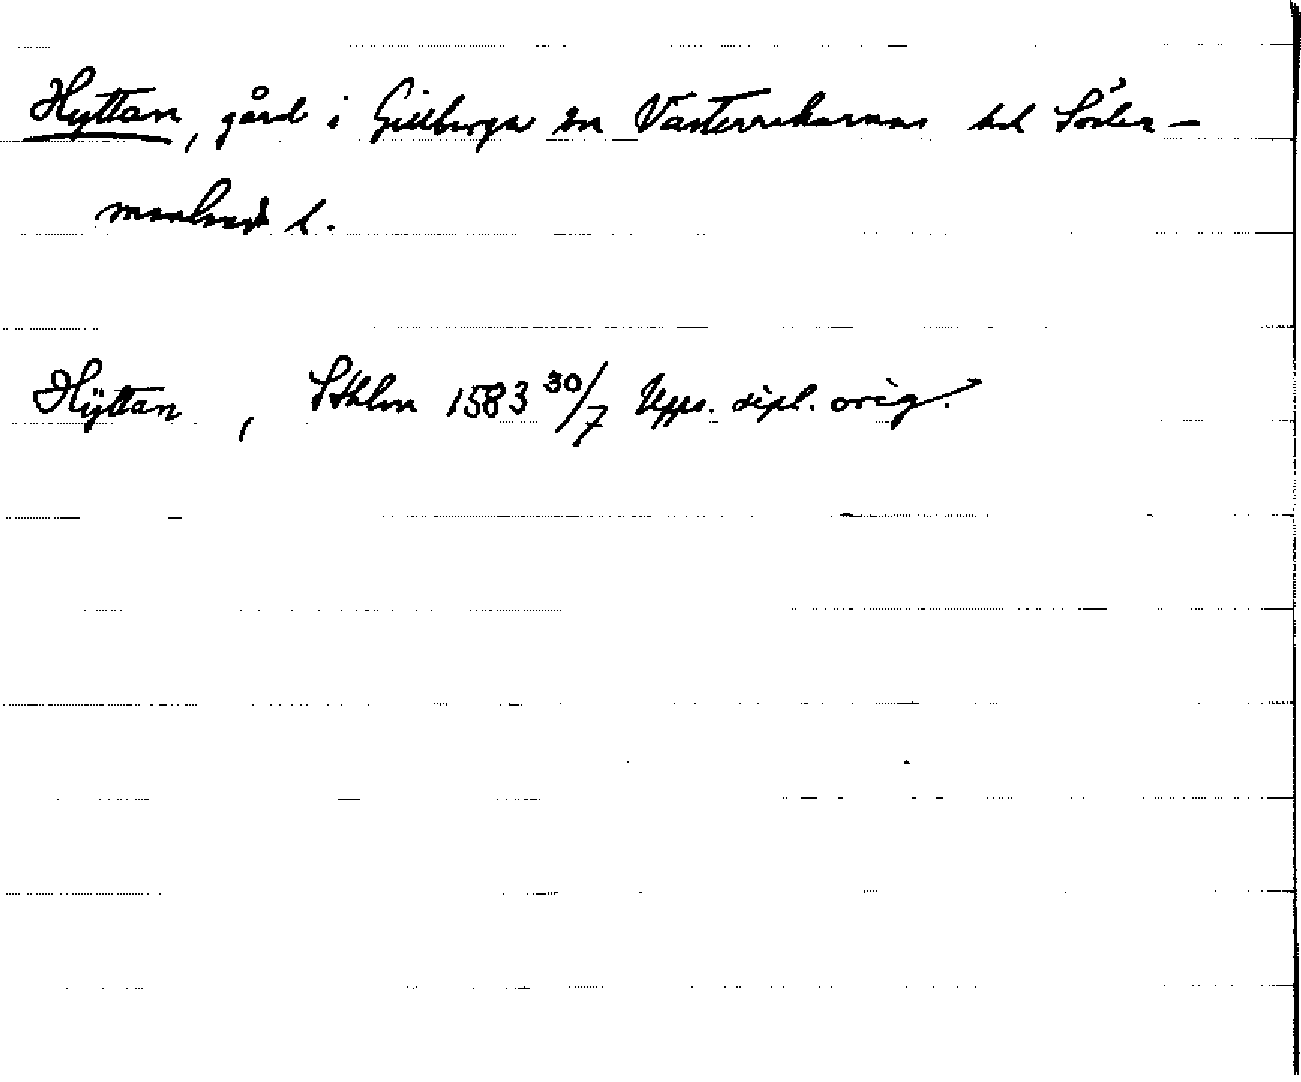 Hyttan, gård i Gillberga sn Västerrekarnas hd Söder-
manlands l.
Hÿttan, Sthlm 1583 30/7 Upps. dipl. orig.